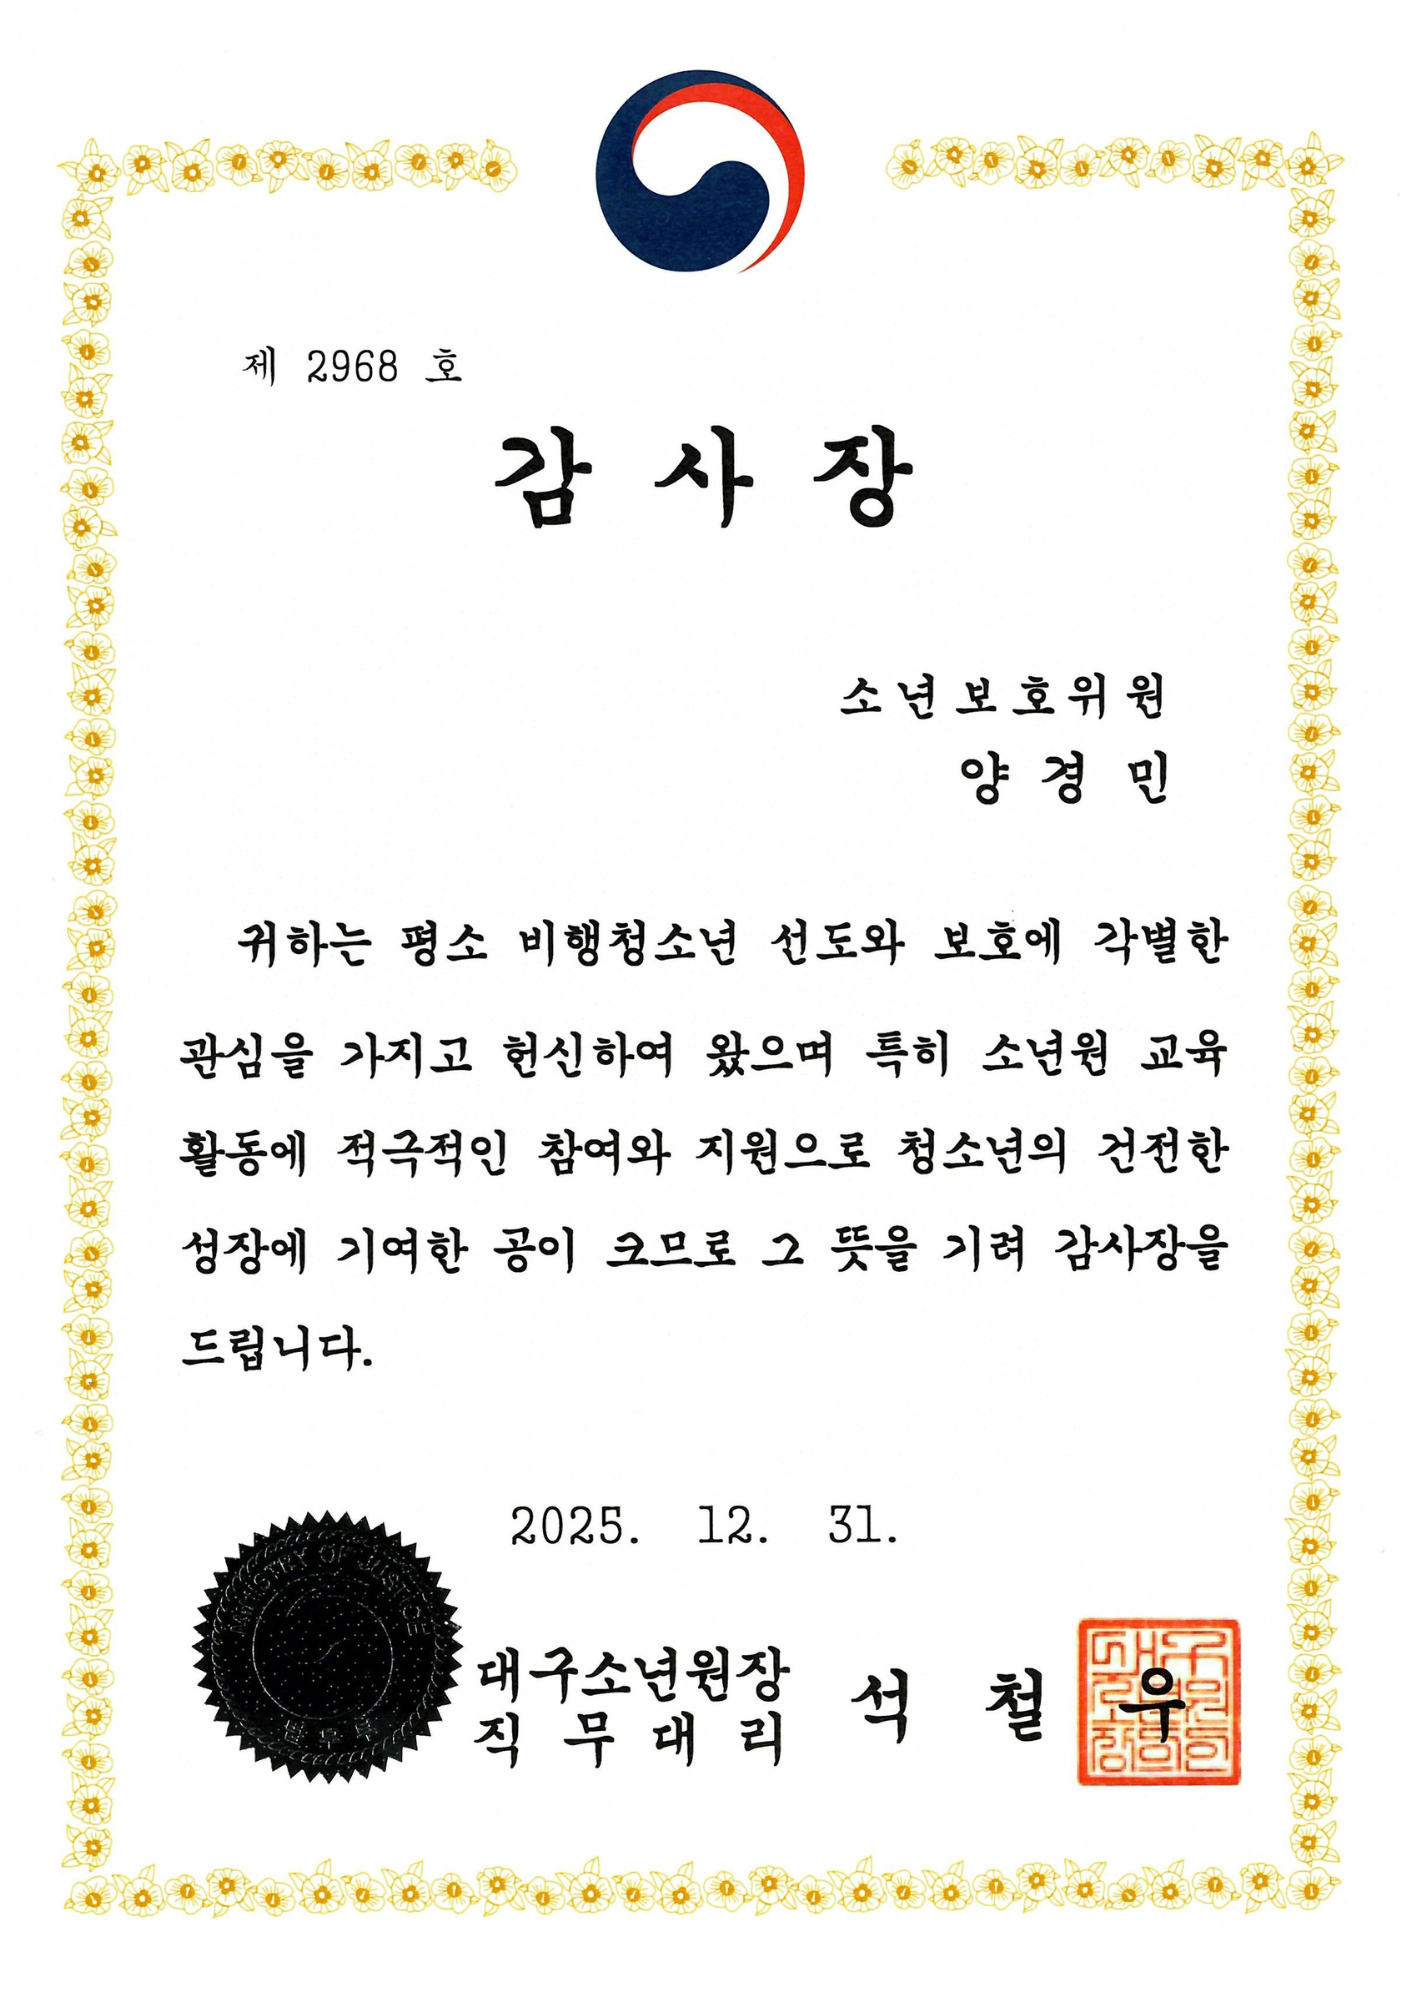 제 2968 호
감 사 장
소년보호위원
양 경 민
귀하는 평소 비행청소년 선도와 보호에 각별한
관심을 가지고 헌신하여 왔으며 특히 소년원 교육
활동에 적극적인 참여와 지원으로 청소년의 건전한
성장에 기여한 공이 크므로 그 뜻을 기려 감사장을
드립니다.
2025. 12. 31.
MINISTRY OF JUSTICE
법무부
대구소년원장
직 무 대 리
석 철 우
대구
소년원
장의인